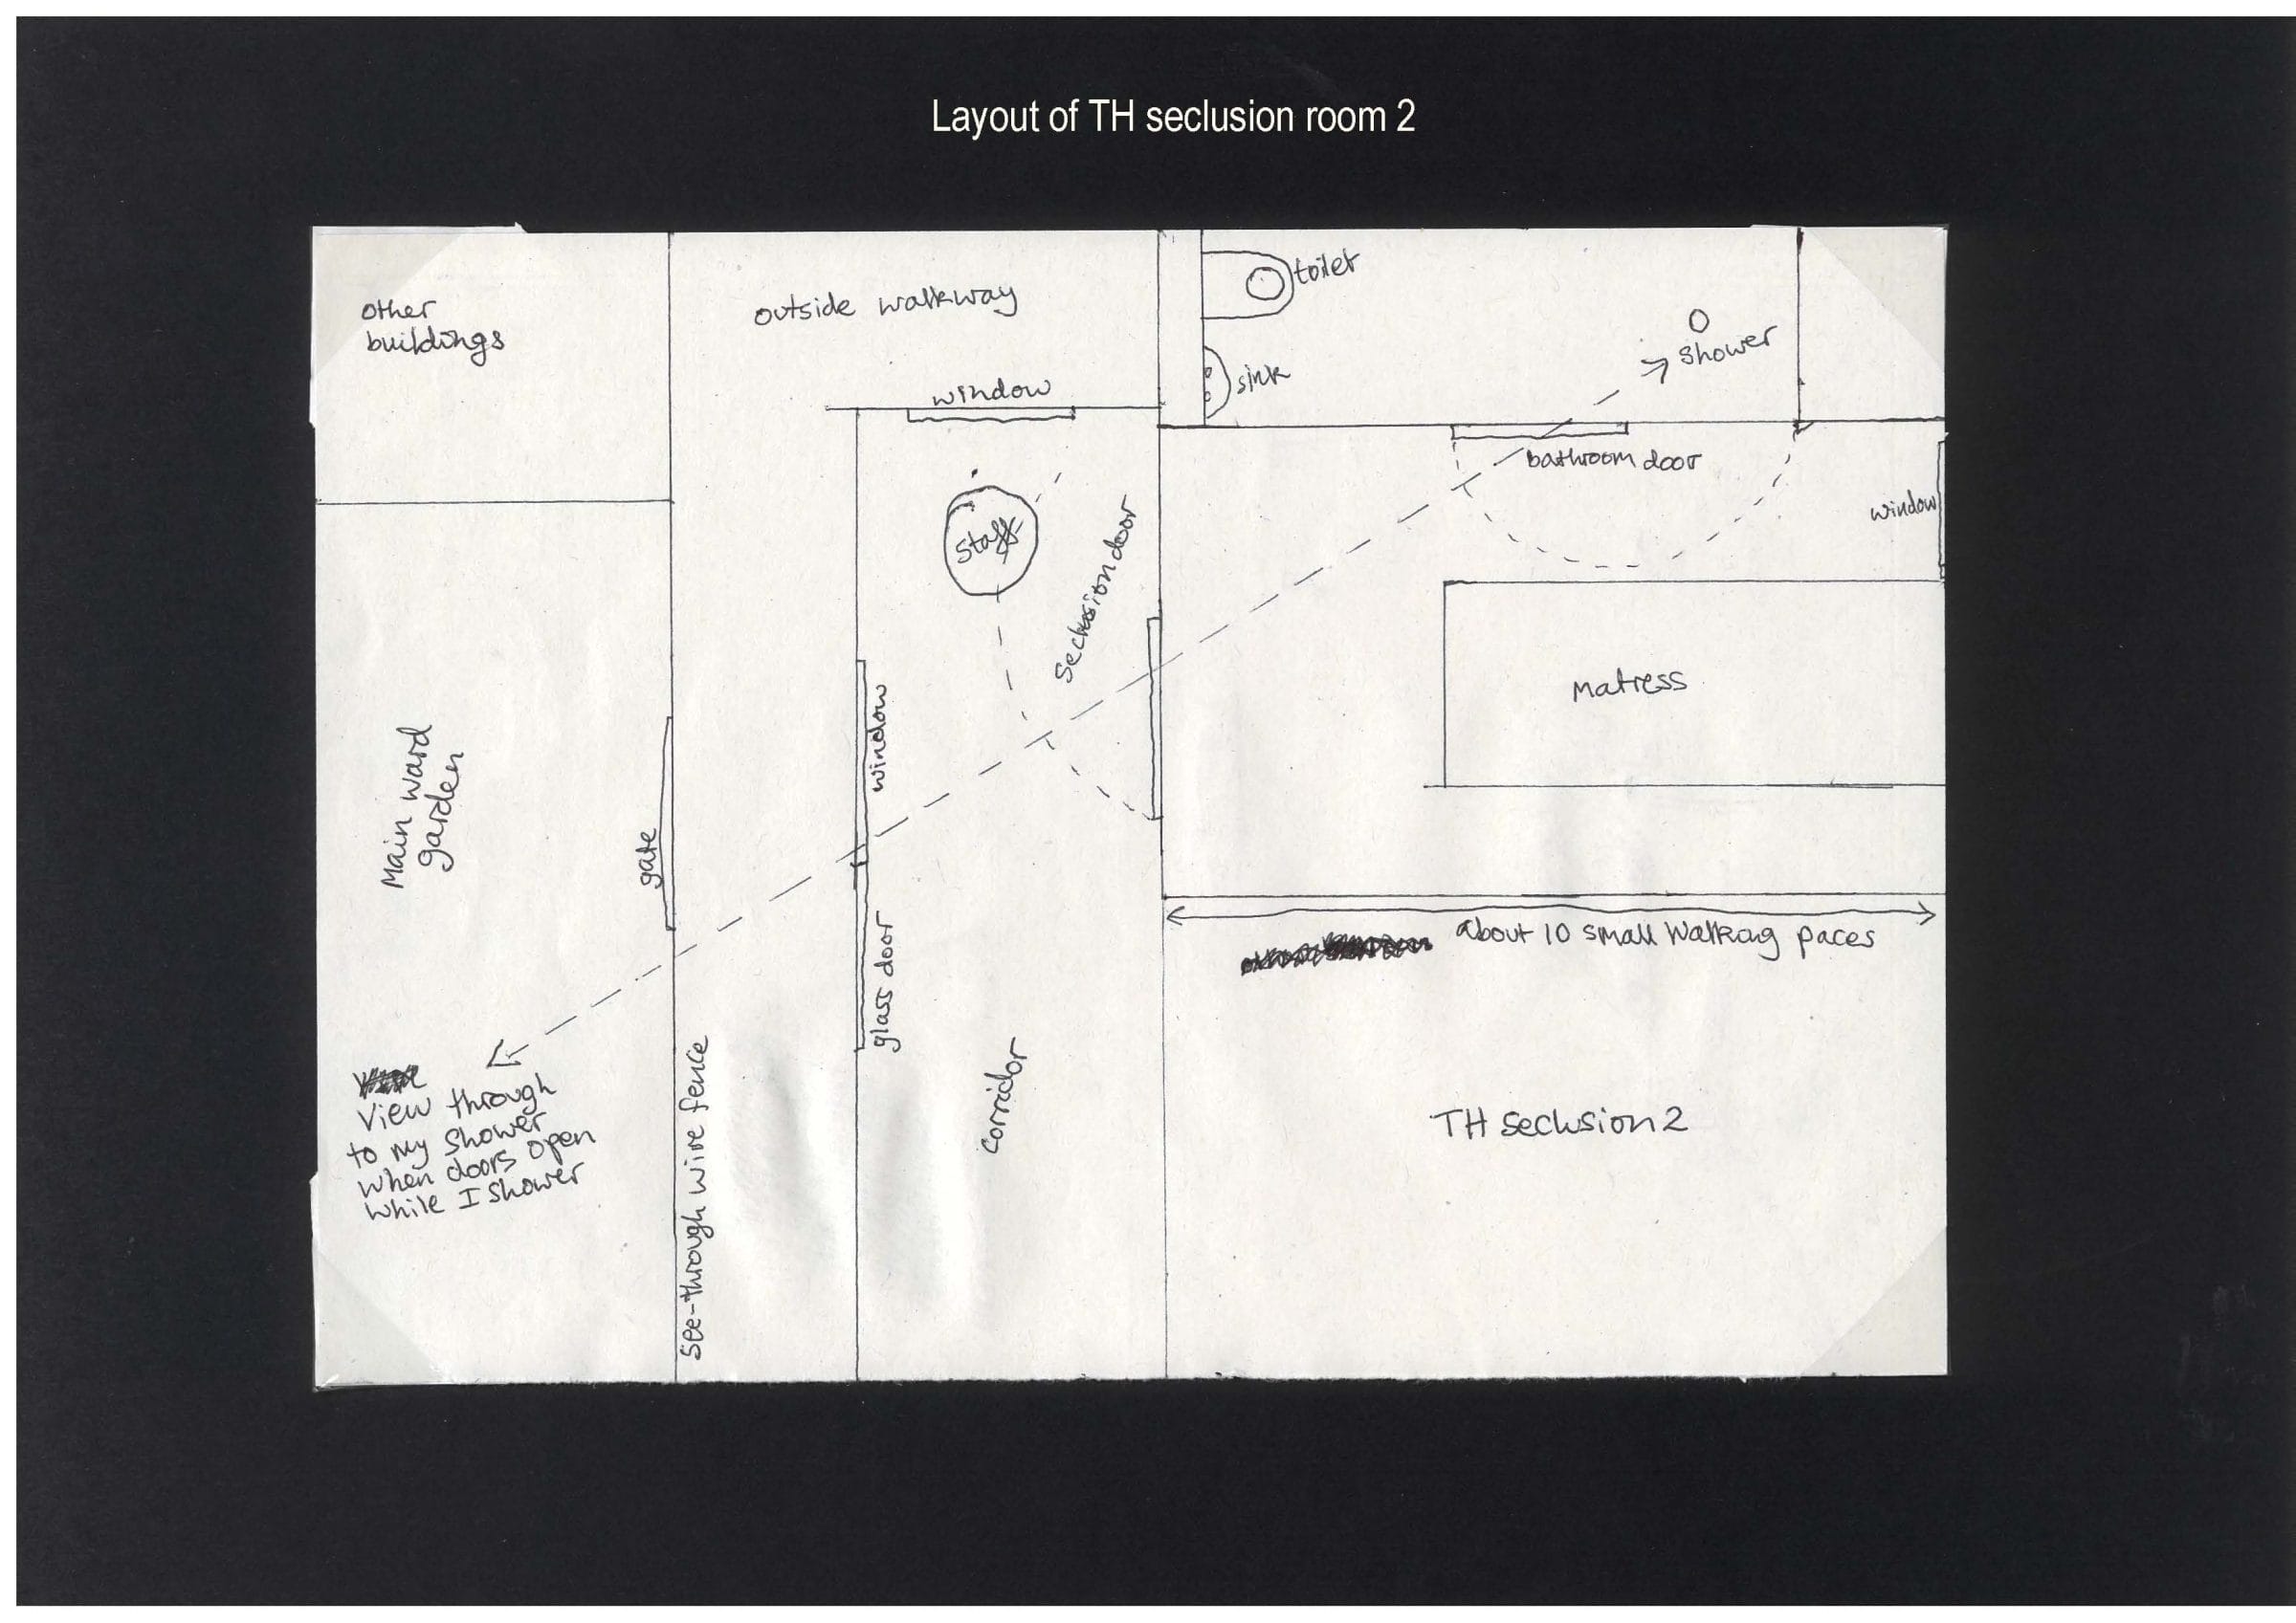 Layout of TH seclusion room 2
other
buildings
outside walkway
toilet
shower
sink
window
bathroom door
window
staff
seclusion door
matress
window
Main ward
garden
gate
glass door
about 10 small walking paces
corridor
see-through wire fence
View through
to my shower
when doors open
while I shower
TH seclusion 2